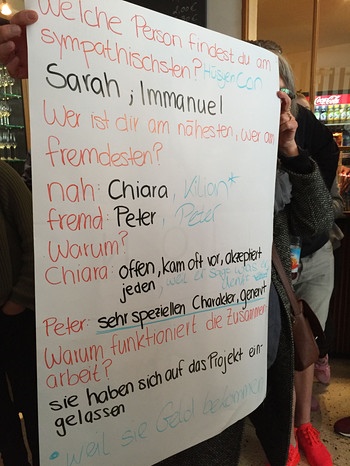 Welche Person findest du am
sympathischsten? Hüseyin Can
Sarah, Immanuel
Wer ist dir am nähesten, wer am
fremdesten?
nah: Chiara, Kilian*
fremd: Peter, Peter
Warum?
Chiara: offen, kam oft vor, akzeptiert
jeden, weil er sagt was er
denkt
Peter: sehr speziellen Charakter, genervt
Warum funktioniert die Zusammen
arbeit?
sie haben sich auf das Projekt ein-
gelassen
* weil sie Geld bekommen
Coca-Cola